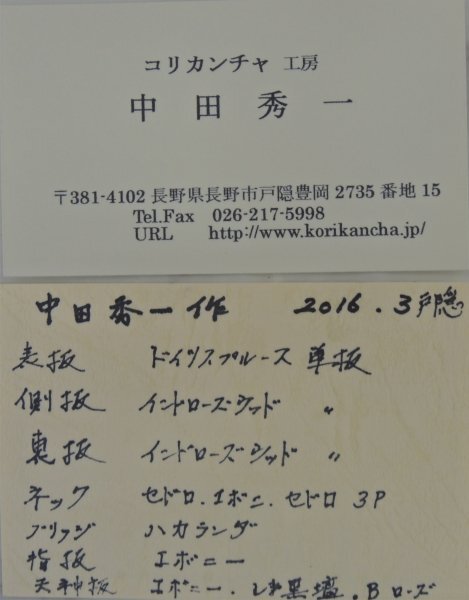 コリカンチャ 工房
中田秀一
〒381-4102 長野県長野市戸隠豊岡 2735 番地 15
Tel.Fax 026-217-5998
URL http://www.korikancha.jp/
中田秀一作 2016.3 戸隠
表板 ドイツスプルース 単板
側板 インドローズウッド 〃
裏板 インドローズウッド 〃
ネック セドロ.エボニ.セドロ 3P
ブリッジ ハカランダ
指板 エボニー
天神板 エボニー.しま黒檀.Bローズ